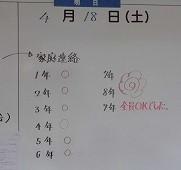 明日
4月18日(土)
家庭連絡
1年 ○
2年 ○
3年 ○
4年 ○
5年 ○
6年 ○
7年
8年
9年 全員OKでした。